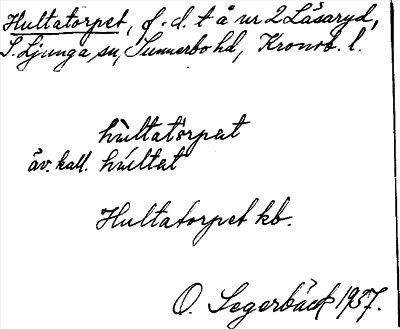 Hultatorpet, f. d. t å nr 2 Låsaryd,
S. Ljunga sn, Sunnerbo hd, Kronob. l.
hu̇ltatȯrpet
äv. kall. hu̇ltat
Hultatorpet kb.
O. Segerbäck 1937.